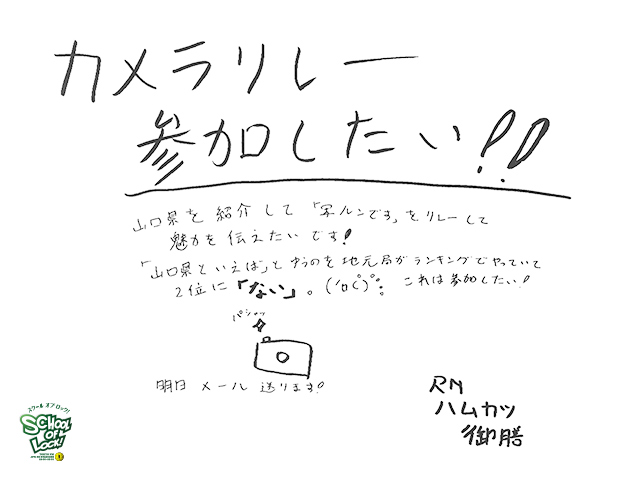 カメラリレー
参加したい!!
山口県を紹介して「写ルンです」をリレーして
魅力を伝えたいです!
「山口県といえば」とゆうのを地元局がランキングでやっていて
2位に「ない」。(´Д`)゚。 これは参加したい!
パシャッ
明日 メール 送ります!
RN
ハムカツ
御膳
スクール オブ ロック!
SCHOOL
OF
LOCK!